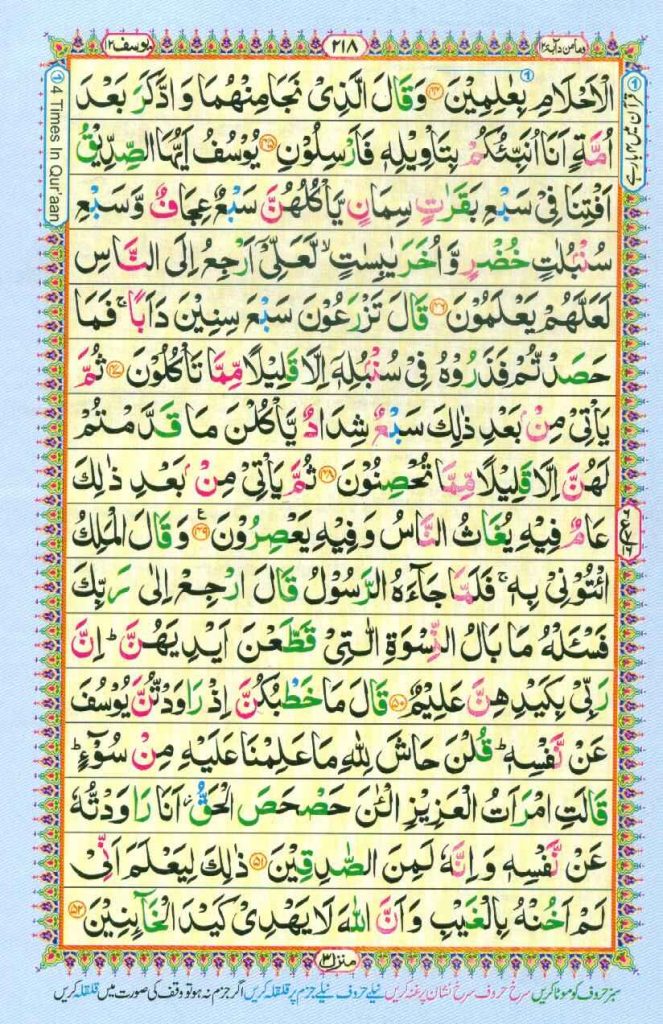 وما من دآبة ١٢
٢١٨
يوسف ١٢
الْاَحْلَامِ بِعٰلِمِيْنَ ﴿۴۴﴾ وَقَالَ الَّذِىْ نَجَا مِنْهُمَا وَ ادَّكَرَ بَعْدَ
اُمَّةٍ اَنَا اُنَبِّئُكُمْ بِتَاْوِيْلِهٖ فَاَرْسِلُوْنِ ﴿۴۵﴾ يُوْسُفُ اَيُّهَا الصِّدِّيْقُ
اَفْتِنَا فِىْ سَبْعِ بَقَرٰتٍ سِمَانٍ يَّاْكُلُهُنَّ سَبْعٌ عِجَافٌ وَّ سَبْعِ
سُنْۢبُلٰتٍ خُضْرٍ وَّ اُخَرَ يٰبِسٰتٍ ۙ لَّعَلِّىْۤ اَرْجِعُ اِلَى النَّاسِ
لَعَلَّهُمْ يَعْلَمُوْنَ ﴿۴۶﴾ قَالَ تَزْرَعُوْنَ سَبْعَ سِنِيْنَ دَاَبًا ۚ فَمَا
حَصَدْتُّمْ فَذَرُوْهُ فِىْ سُنْۢبُلِهٖۤ اِلَّا قَلِيْلًا مِّمَّا تَاْكُلُوْنَ ﴿۴۷﴾ ثُمَّ
يَاْتِىْ مِنْۢ بَعْدِ ذٰلِكَ سَبْعٌ شِدَادٌ يَّاْكُلْنَ مَا قَدَّمْتُمْ
لَهُنَّ اِلَّا قَلِيْلًا مِّمَّا تُحْصِنُوْنَ ﴿۴۸﴾ ثُمَّ يَاْتِىْ مِنْۢ بَعْدِ ذٰلِكَ
عَامٌ فِيْهِ يُغَاثُ النَّاسُ وَ فِيْهِ يَعْصِرُوْنَ ﴿۴۹﴾ ع وَ قَالَ الْمَلِكُ
ائْتُوْنِىْ بِهٖ ۚ فَلَمَّا جَآءَهُ الرَّسُوْلُ قَالَ ارْجِعْ اِلٰى رَبِّكَ
فَسْئَلْهُ مَا بَالُ النِّسْوَةِ الّٰتِىْ قَطَّعْنَ اَيْدِيَهُنَّ ؕ اِنَّ
رَبِّىْ بِكَيْدِهِنَّ عَلِيْمٌ ﴿۵۰﴾ قَالَ مَا خَطْبُكُنَّ اِذْ رَاوَدْتُّنَّ يُوْسُفَ
عَنْ نَّفْسِهٖ ؕ قُلْنَ حَاشَ لِلّٰهِ مَا عَلِمْنَا عَلَيْهِ مِنْ سُوْٓءٍ ؕ
قَالَتِ امْرَاَتُ الْعَزِيْزِ الْئٰنَ حَصْحَصَ الْحَقُّ ؗ اَنَا رَاوَدْتُّهٗ
عَنْ نَّفْسِهٖ وَ اِنَّهٗ لَمِنَ الصّٰدِقِيْنَ ﴿۵۱﴾ ذٰلِكَ لِيَعْلَمَ اَنِّىْ
لَمْ اَخُنْهُ بِالْغَيْبِ وَ اَنَّ اللّٰهَ لَا يَهْدِىْ كَيْدَ الْخَآئِنِيْنَ ﴿۵۲﴾
① قرآن میں ۴ بار ہے
① 4 Times In Qur'aan
منزل ۳
سبز حروف کو موٹا کریں سرخ حروف سرخ نشان پر غنہ کریں نیلے حروف نیلے جزم پر قلقلہ کریں اگر جزم نہ ہو تو وقف کی صورت میں قلقلہ کریں